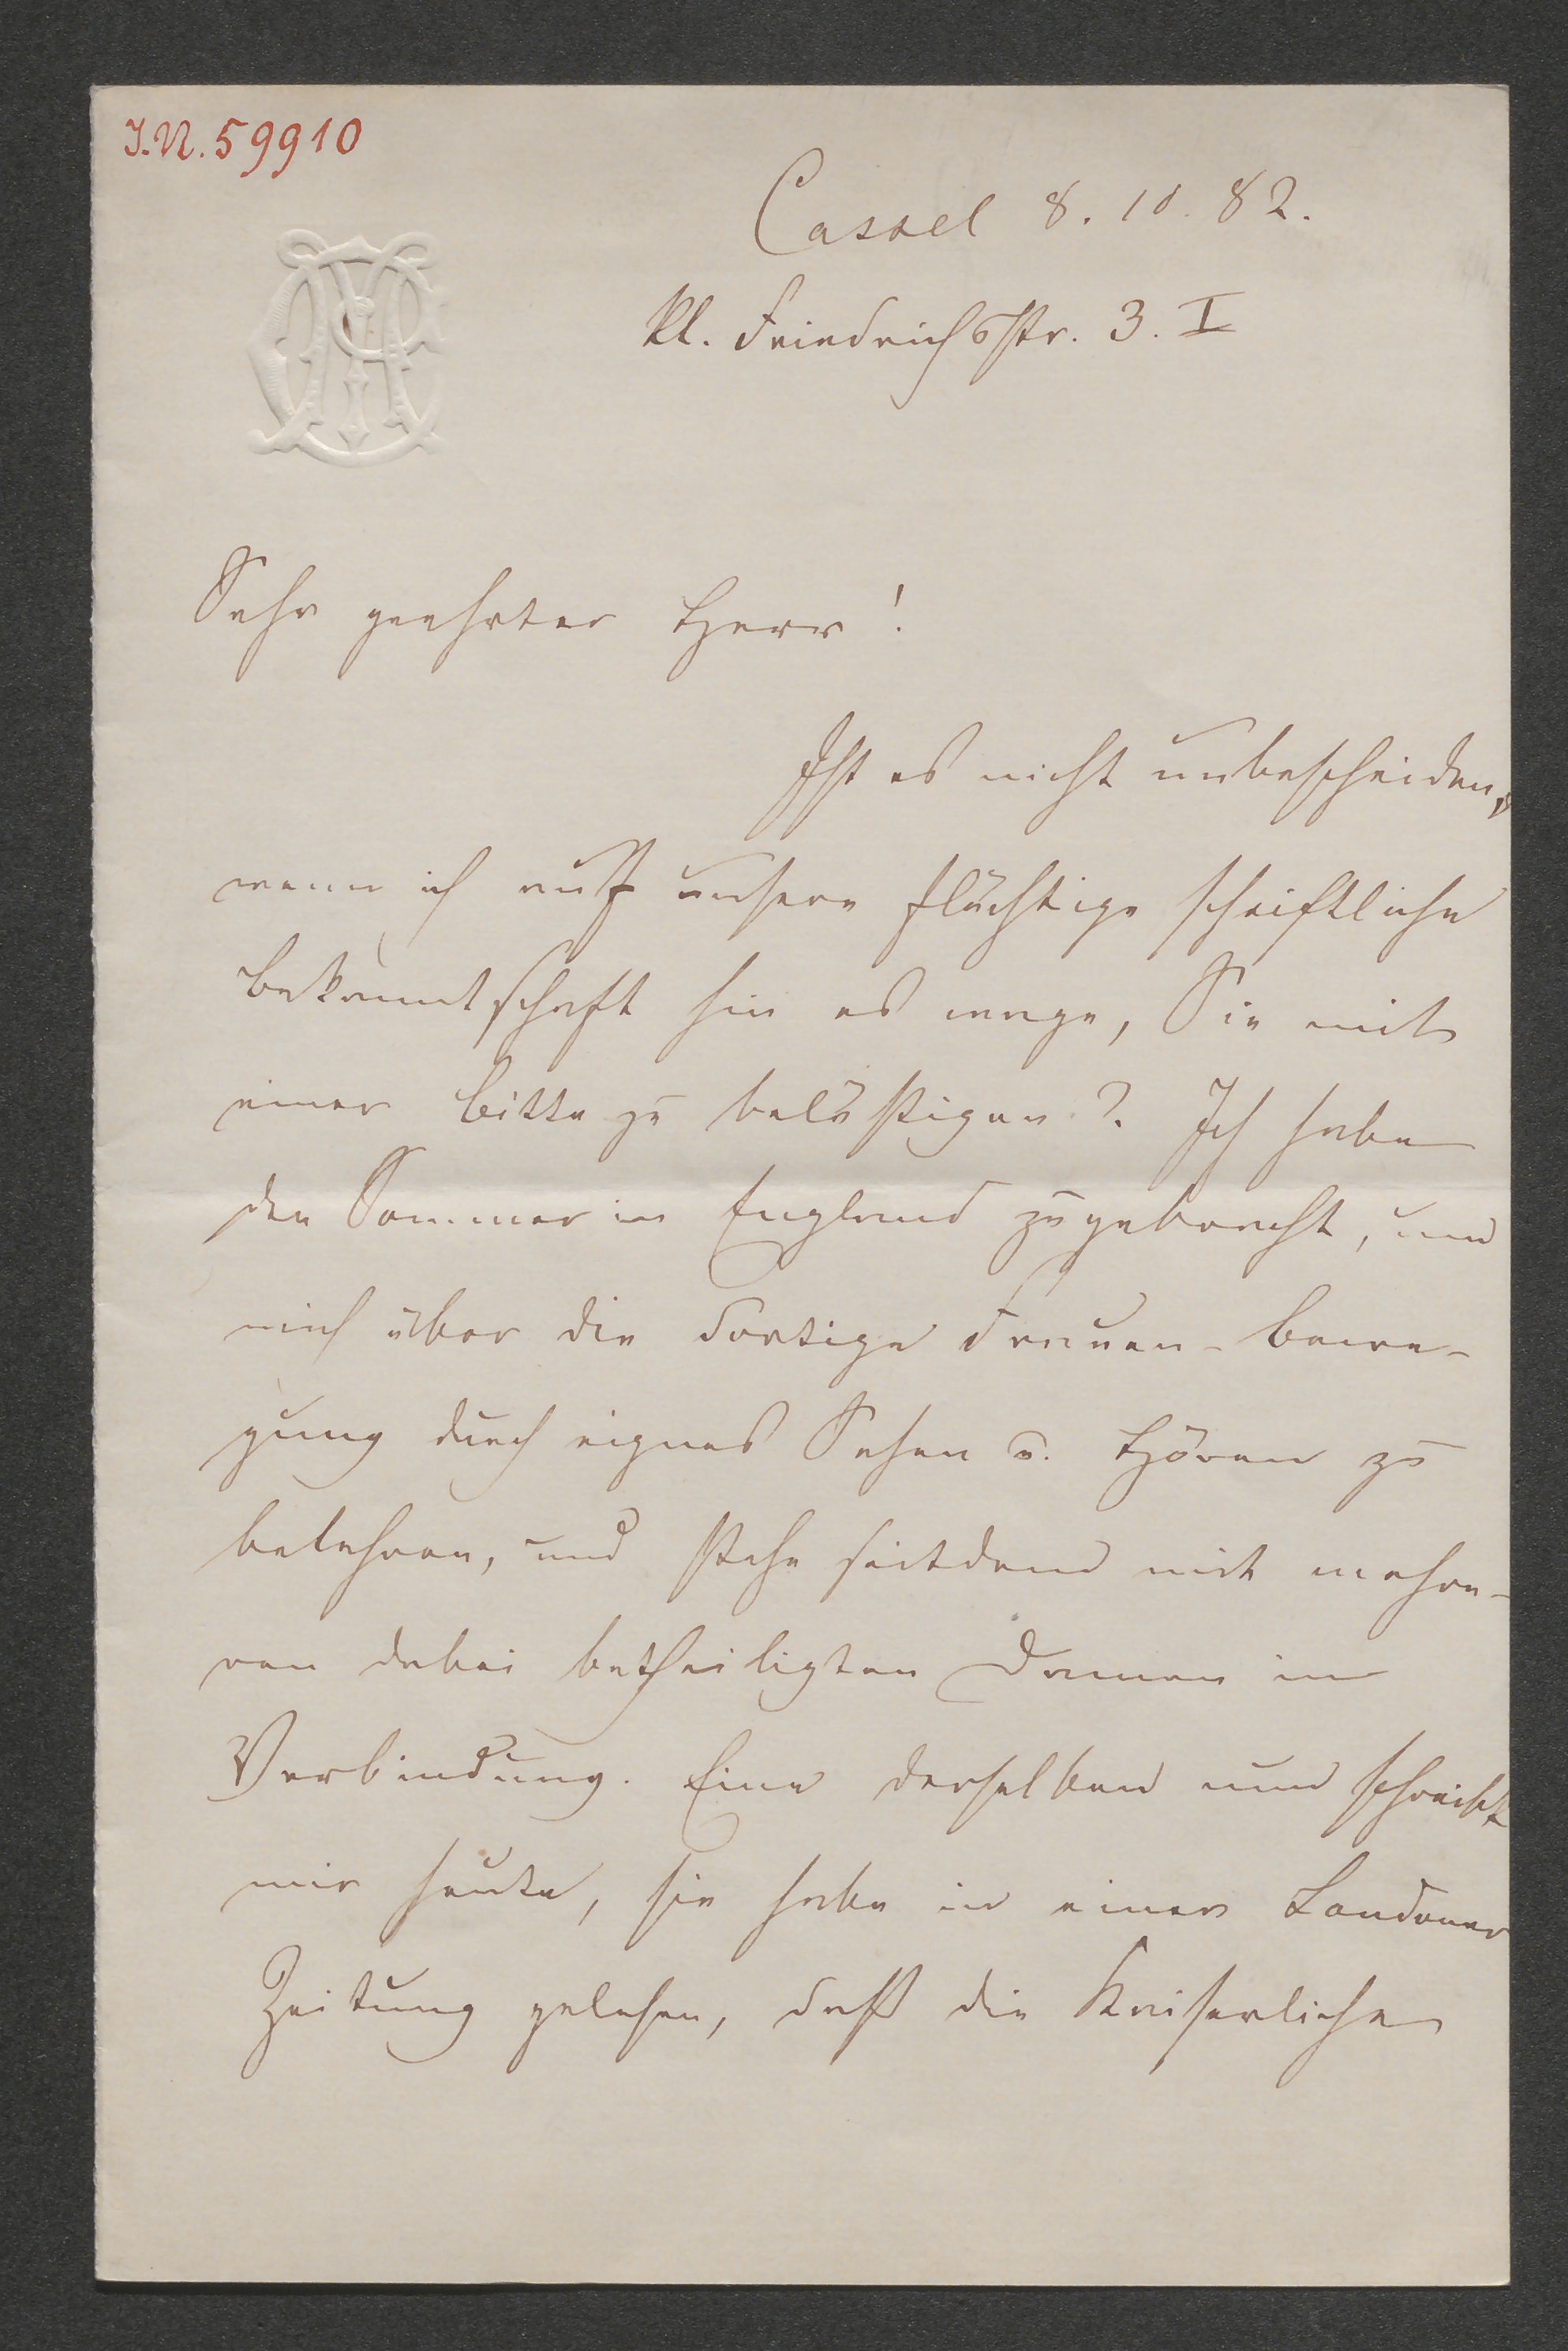 I.N. 59910
Cassel 8. 10. 82.
Kl. Friedrichsstr. 3. I
Sehr geehrter Herr!
Ist es nicht unbescheiden,
wenn ich auf unsere flüchtige schriftliche
Bekanntschaft hin es wage, Sie mit
einer Bitte zu belästigen? Ich habe
den Sommer in England zugebracht, um
mich über die dortige Frauen-Bewe-
gung durch eignes Sehen u. Hören zu
belehren, und stehe seitdem mit mehre-
ren dabei betheiligten Damen in
Verbindung. Eine derselben nun schreibt
mir heute, sie habe in einer Londoner
Zeitung gelesen, daß die Kaiserliche